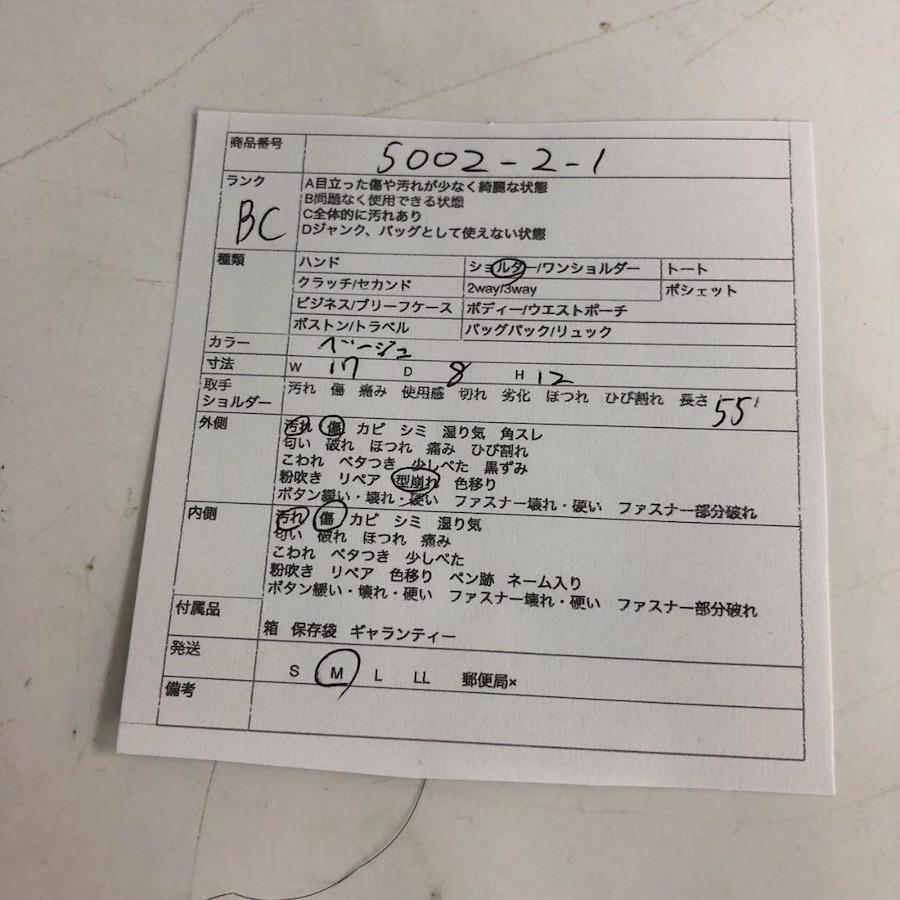 商品番号 5002-2-1
ランク BC
A目立った傷や汚れが少なく綺麗な状態
B問題なく使用できる状態
C全体的に汚れあり
Dジャンク、バッグとして使えない状態
種類 ハンド ショルダー/ワンショルダー トート
クラッチ/セカンド 2way/3way ポシェット
ビジネス/ブリーフケース ボディー/ウエストポーチ
ボストン/トラベル バッグパック/リュック
カラー ベージュ
寸法 W 17 D 8 H 12
取手 汚れ 傷 痛み 使用感 切れ 劣化 ほつれ ひび割れ 長さ 55
ショルダー
外側 汚れ 傷 カビ シミ 湿り気 角スレ
匂い 破れ ほつれ 痛み ひび割れ
こわれ ベタつき 少しべた 黒ずみ
粉吹き リペア 型崩れ 色移り
ボタン緩い・壊れ・硬い ファスナー壊れ・硬い ファスナー部分破れ
内側 汚れ 傷 カビ シミ 湿り気
匂い 破れ ほつれ 痛み
こわれ ベタつき 少しべた
粉吹き リペア 色移り ペン跡 ネーム入り
ボタン緩い・壊れ・硬い ファスナー壊れ・硬い ファスナー部分破れ
付属品 箱 保存袋 ギャランティー
発送 S M L LL 郵便局×
備考